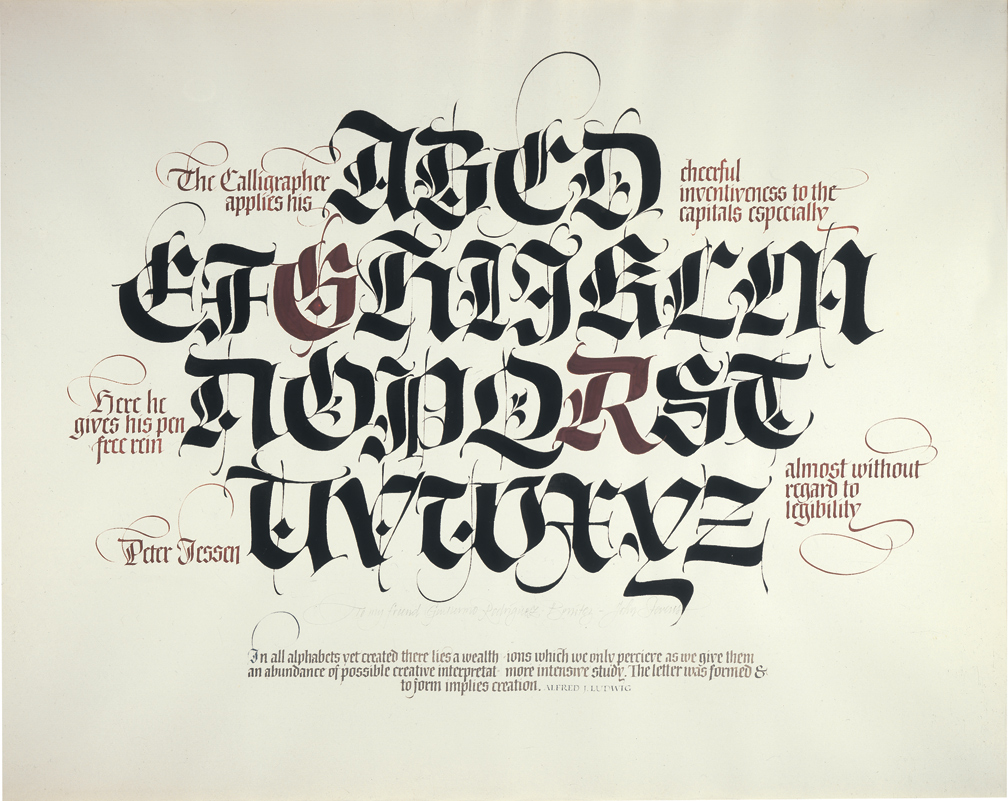 The Calligrapher
applies his
ABCD
cheerful
inventiveness to the
capitals especially
EFGHIJKLM
Here he
gives his pen
free rein
NOPQRST
almost without
regard to
legibility
UVWXYZ
Peter Jessen
To my friend Guillermo Rodriguez Benitez - John Stevens
In all alphabets yet created there lies a wealth · ions which we only percieve as we give them
an abundance of possible creative interpretat · more intensive study. The letter was formed &
to form implies creation. ALFRED J. LUDWIG